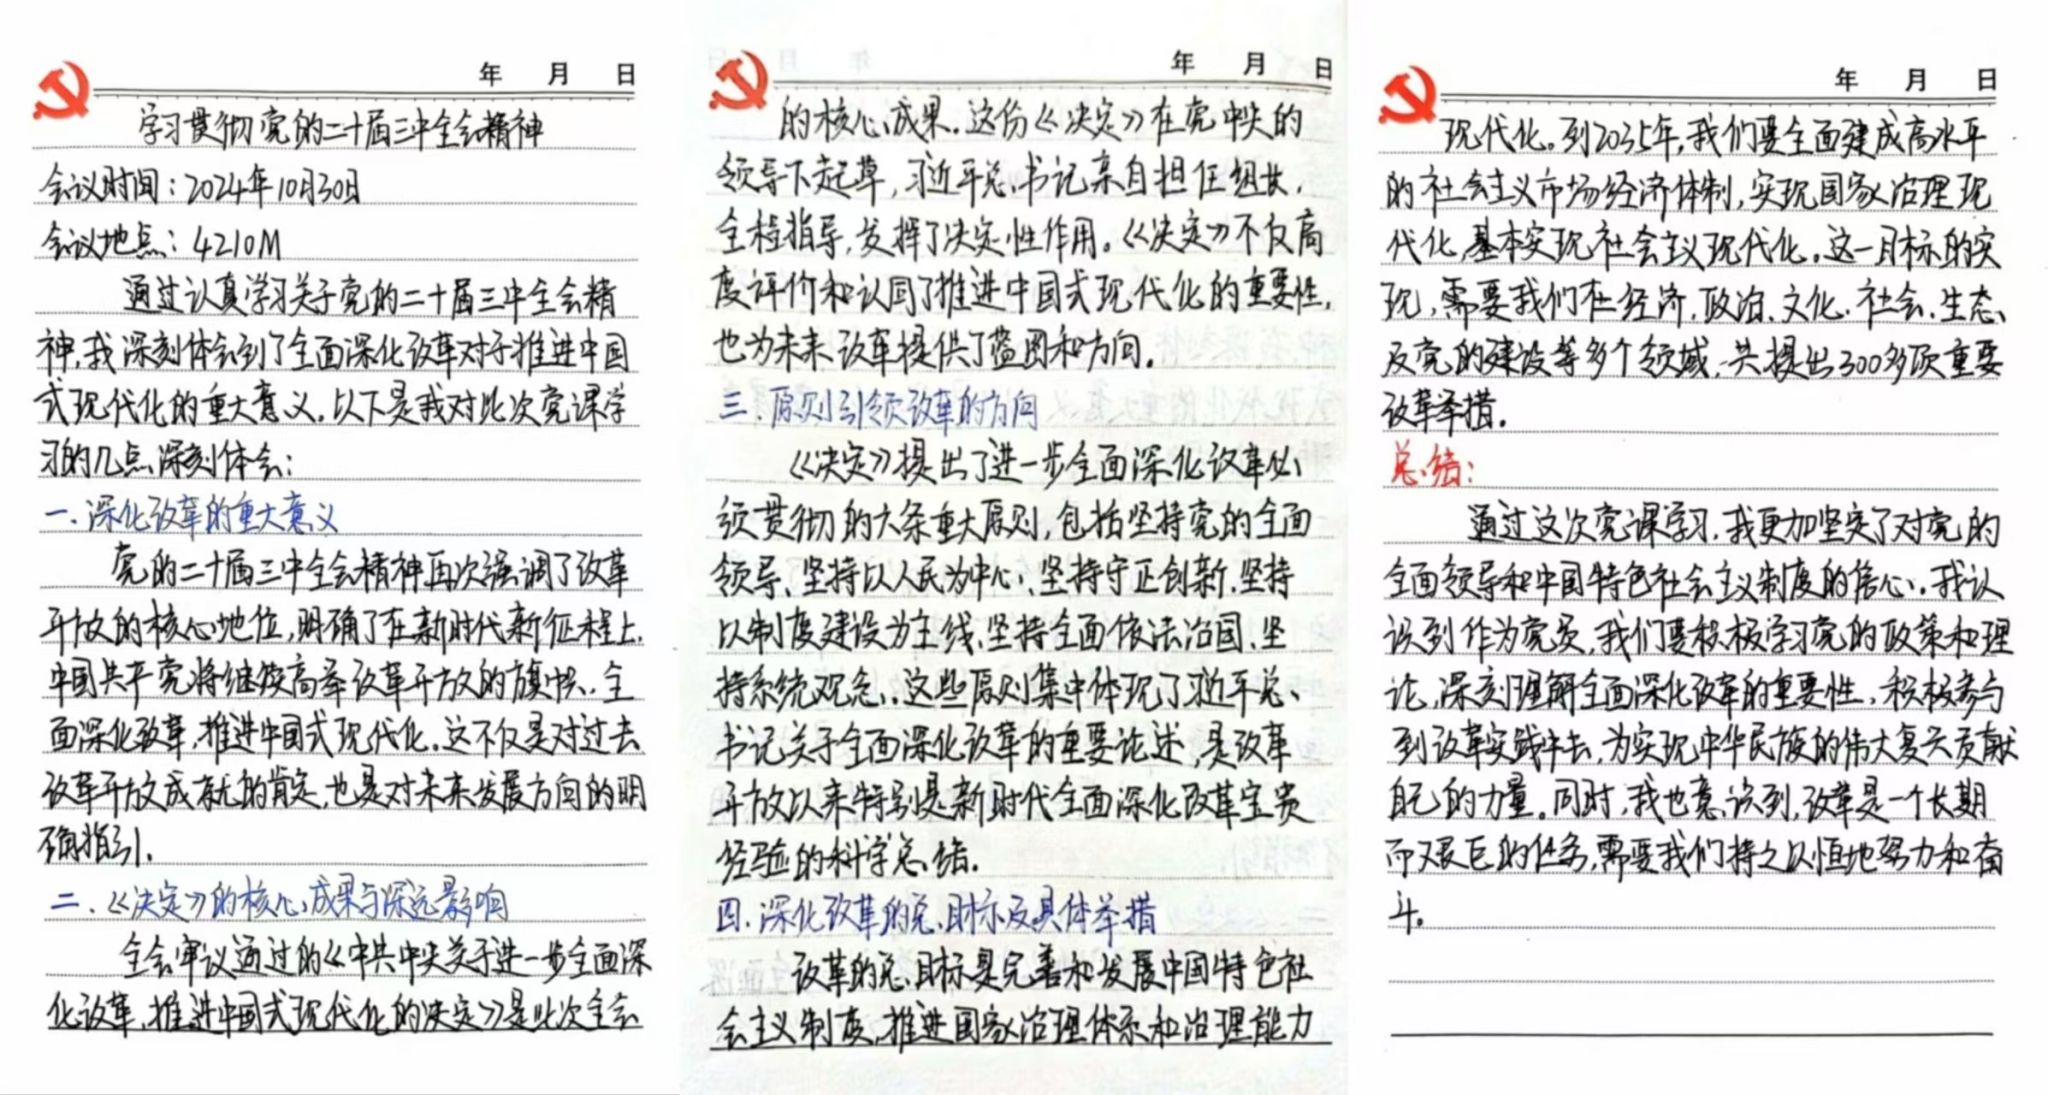 年 月 日
学习贯彻党的二十届三中全会精神
会议时间：2024年10月30日
会议地点：4210M
通过认真学习关于党的二十届三中全会精
神，我深刻体会到了全面深化改革对于推进中国
式现代化的重大意义。以下是我对此次党课学
习的几点深刻体会：
一、深化改革的重大意义
党的二十届三中全会精神再次强调了改革
开放的核心地位，明确了在新时代新征程上，
中国共产党将继续高举改革开放的旗帜，全
面深化改革，推进中国式现代化。这不仅是对过去
改革开放成就的肯定，也是对未来发展方向的明
确指引。
二、《决定》的核心成果与深远影响
全会审议通过的《中共中央关于进一步全面深
化改革，推进中国式现代化的决定》是此次全会
年 月 日
的核心成果。这份《决定》在党中央的
领导下起草，习近平总书记亲自担任组长，
全程指导，发挥了决定性作用。《决定》不仅高
度评价和认同了推进中国式现代化的重要性，
也为未来改革提供了蓝图和方向。
三、原则引领改革的方向
《决定》提出了进一步全面深化改革必
须贯彻的六条重大原则，包括坚持党的全面
领导、坚持以人民为中心、坚持守正创新、坚持
以制度建设为主线、坚持全面依法治国、坚
持系统观念。这些原则集中体现了习近平总
书记关于全面深化改革的重要论述，是改革
开放以来特别是新时代全面深化改革宝贵
经验的科学总结。
四、深化改革的总目标及具体举措
改革的总目标是完善和发展中国特色社
会主义制度，推进国家治理体系和治理能力
年 月 日
现代化。到2035年，我们要全面建成高水平
的社会主义市场经济体制，实现国家治理现
代化，基本实现社会主义现代化。这一目标的实
现，需要我们在经济、政治、文化、社会、生态、
及党的建设等多个领域，共提出300多项重要
改革举措。
总结：
通过这次党课学习，我更加坚定了对党的
全面领导和中国特色社会主义制度的信心。我认
识到作为党员，我们要积极学习党的政策和理
论，深刻理解全面深化改革的重要性，积极参与
到改革实践中去，为实现中华民族的伟大复兴贡献
自己的力量。同时，我也意识到，改革是一个长期
而艰巨的任务，需要我们持之以恒地努力和奋
斗。